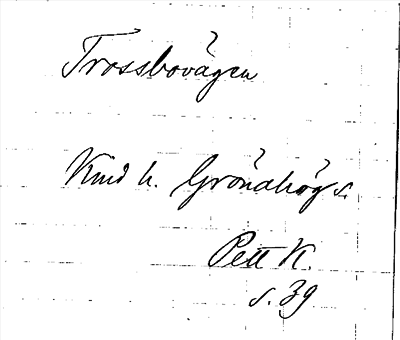 Trossbovägen
Kind h. Grönahögs s.
Pett K.
s. 39